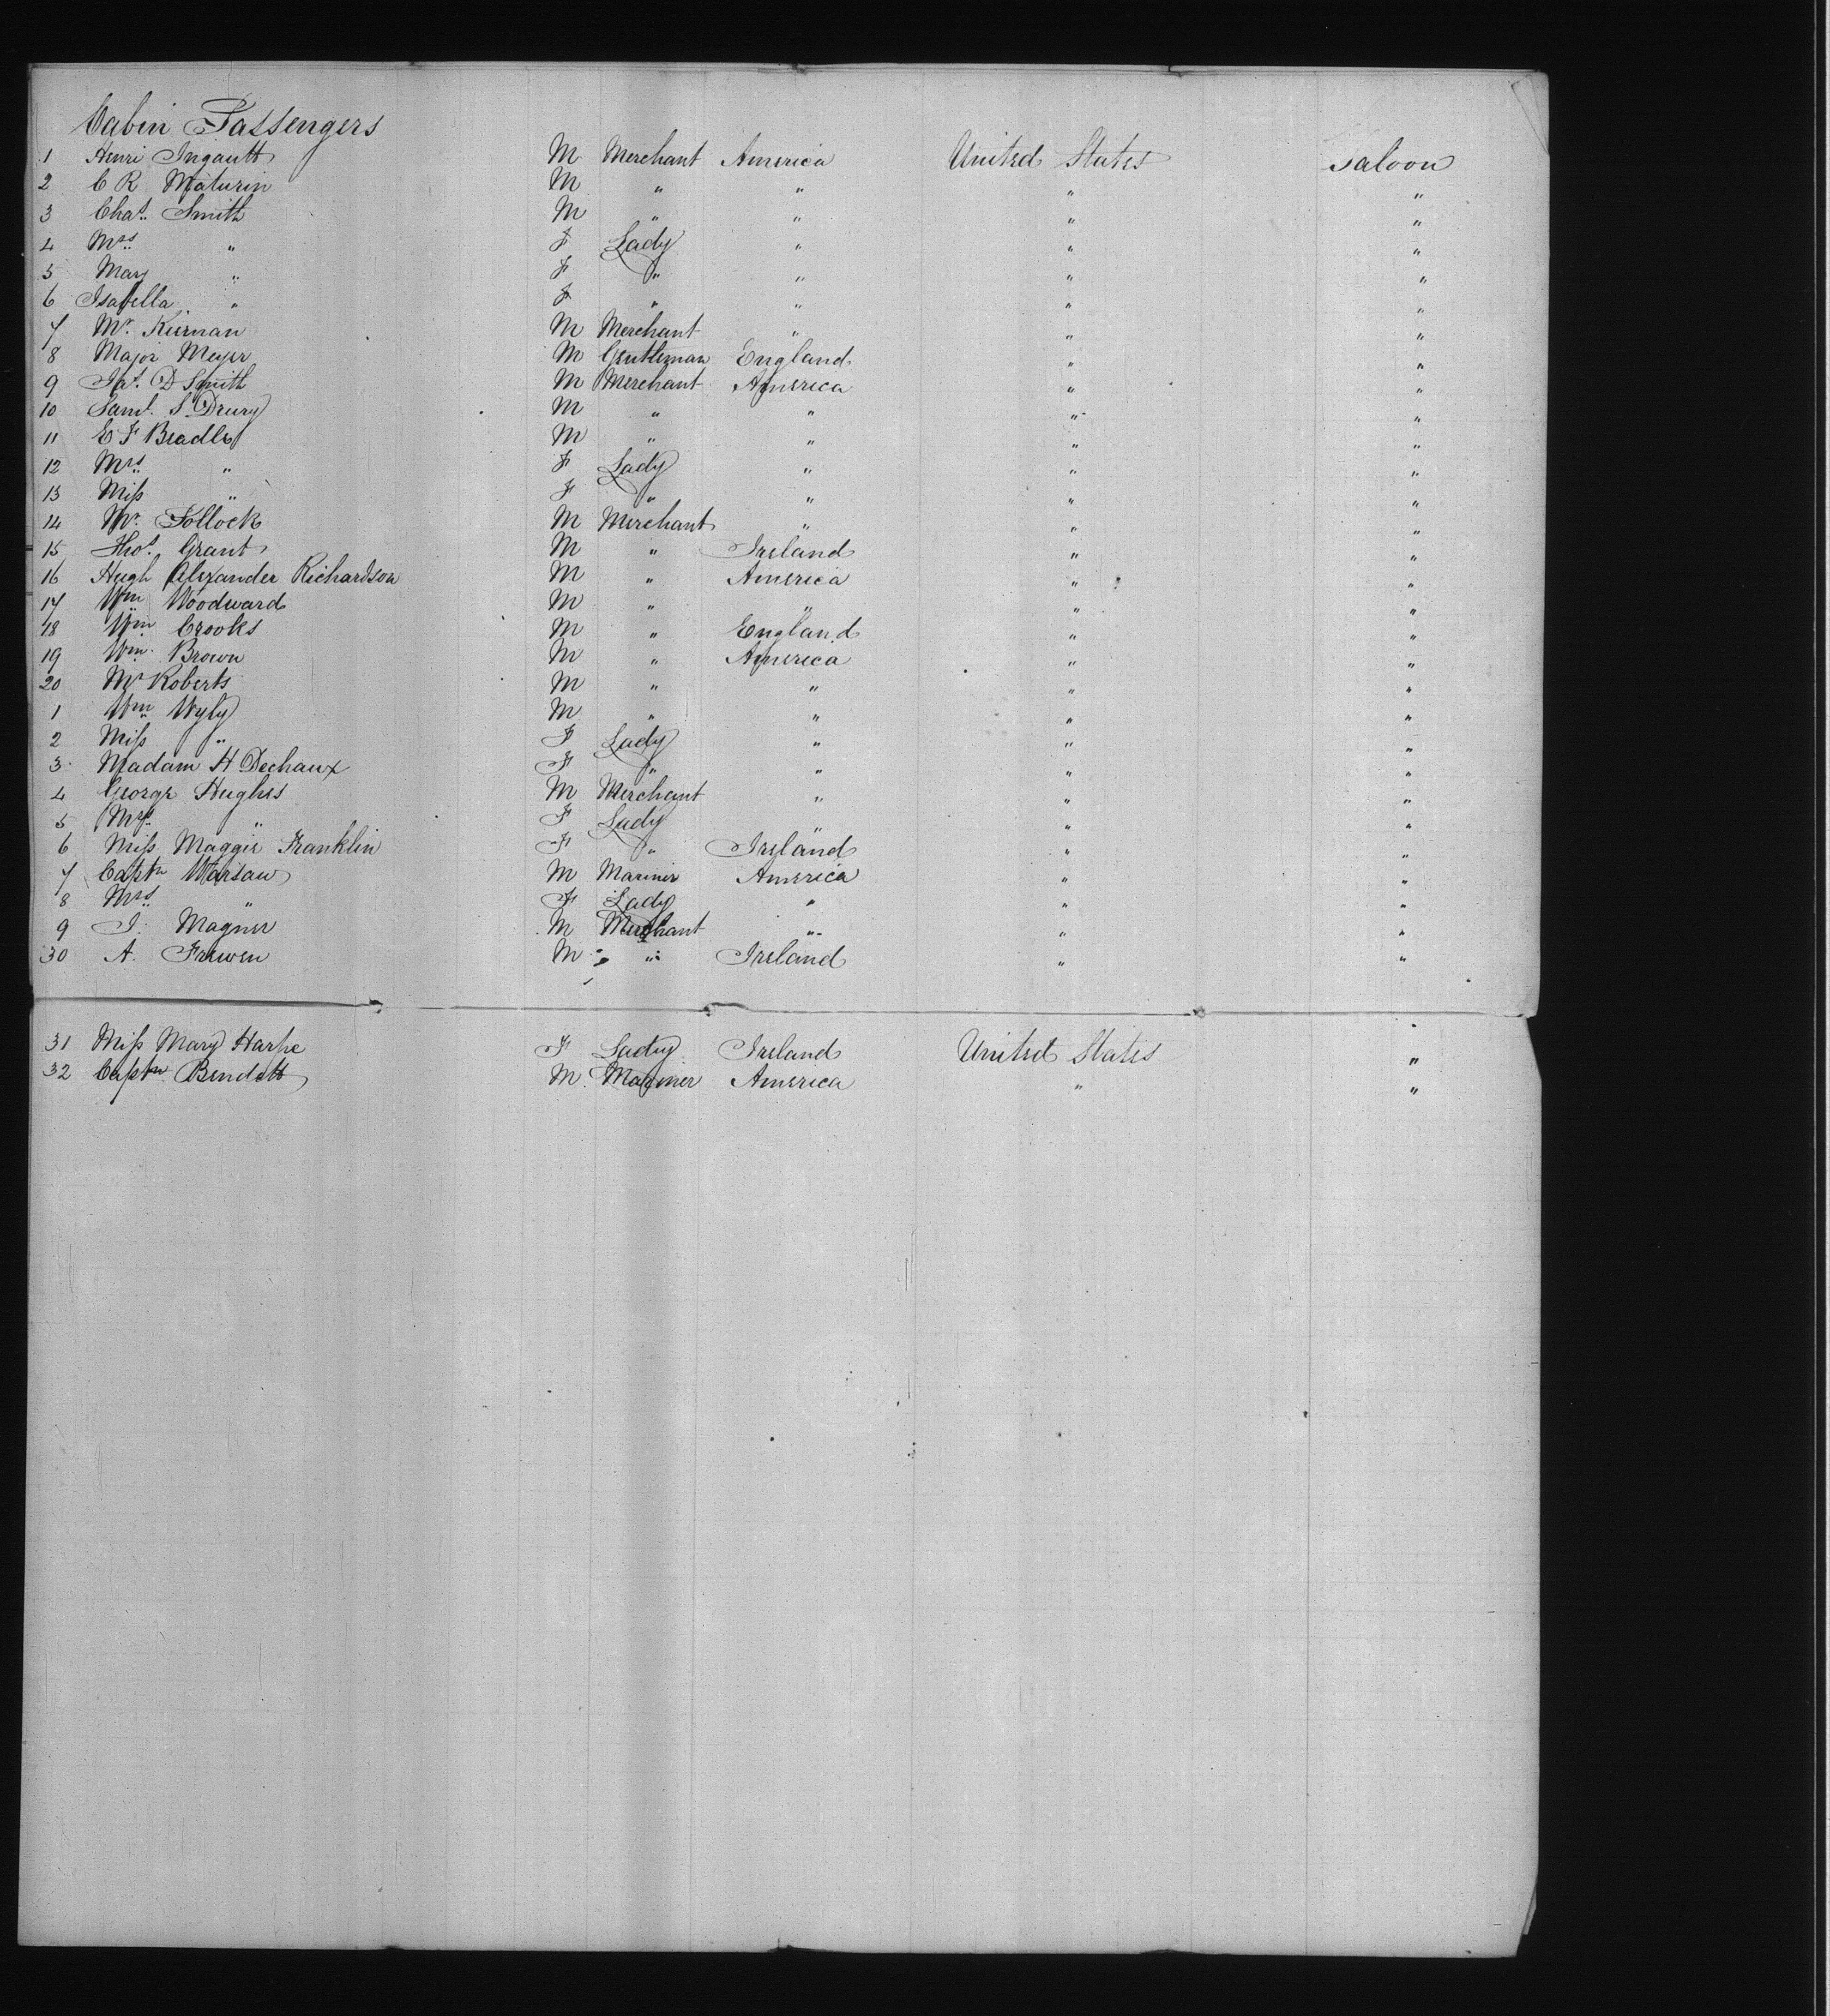 Cabin Passengers
1 Henri Ingault M Merchant America United States saloon
2 C R Maturin M " " " "
3 Chas. Smith M " " " "
4 Mrs " F Lady " " "
5 Mary " F " " " "
6 Isabella " F " " " "
7 Mr. Kiernan M Merchant " " "
8 Major Meyer M Gentleman England " "
9 Jas. D Smith M Merchant America " "
10 Saml. S Drury M " " " "
11 E F Beadle M " " " "
12 Mrs. " F Lady " " "
13 Miss " F " " " "
14 Mr. Pollock M Merchant " " "
15 Thos. Grant M " Ireland " "
16 Hugh Alexander Richardson M " America " "
17 Wm Woodward M " " " "
18 Wm Crooks M " England " "
19 Wm. Brown M " America " "
20 Mr Roberts M " " " "
1 Wm Wyly M " " " "
2 Miss " F Lady " " "
3 Madam H Dechaux F " " " "
4 George Hughes M Merchant " " "
5 Mrs. " F Lady " " "
6 Miss Maggie Franklin F " Ireland " "
7 Captn Warsaw M Mariner America " "
8 Mrs. " F Lady " " "
9 J. Magner M Merchant " " "
30 A. Frewen M " Ireland " "
31 Miss Mary Harpe F Lady Ireland United States "
32 Captn Bendett M Mariner America " "